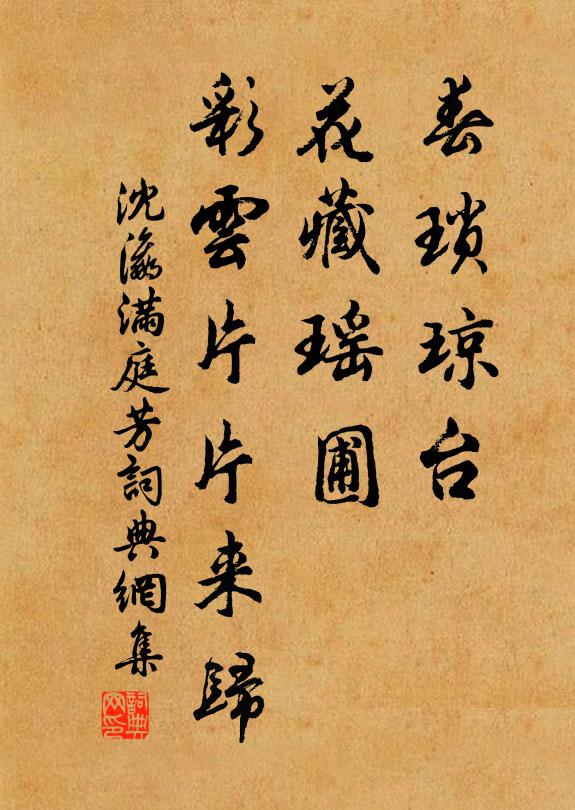 春瑣琼台
花藏瑶圃
彩雲片片来歸
沈瀛满庭芳詞典網集
詞典网印